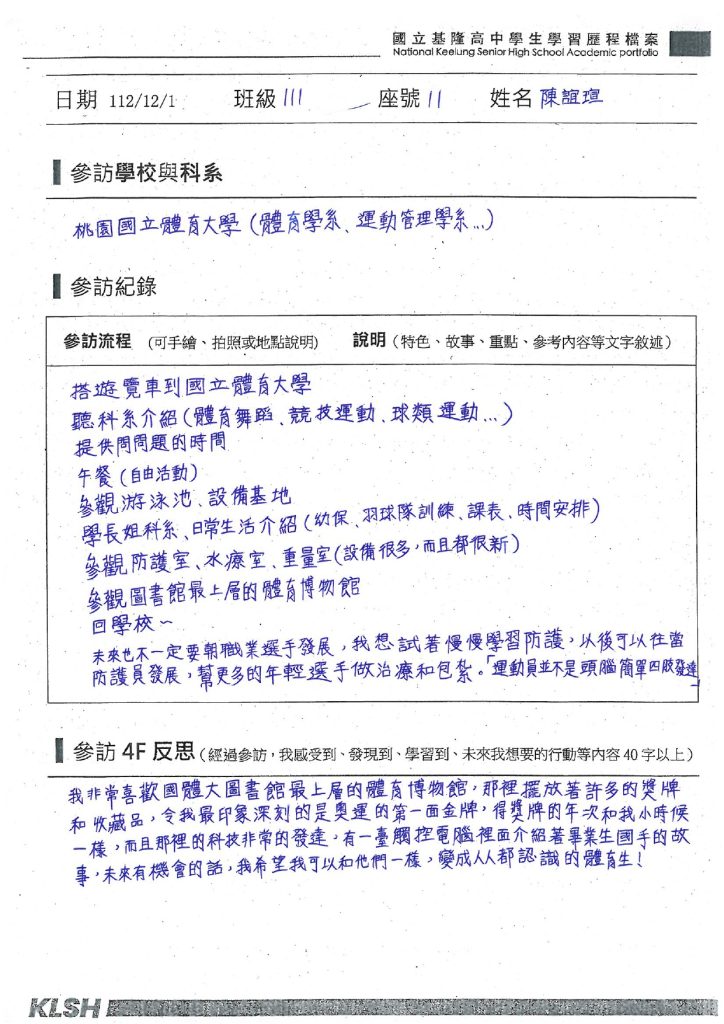 國立基隆高中學生學習歷程檔案
National Keelung Senior High School Academic portfolio
日期 112/12/1 班級 111 座號 11 姓名 陳誼瑄
參訪學校與科系
桃園國立體育大學(體育學系、運動管理學系...)
參訪紀錄
參訪流程 (可手繪、拍照或地點說明) 說明(特色、故事、重點、參考內容等文字敘述)
搭遊覽車到國立體育大學
聽科系介紹(體育舞蹈、競技運動、球類運動...)
提供問問題的時間
午餐(自由活動)
參觀游泳池、設備基地
學長姐科系、日常生活介紹(幼保、羽球隊訓練、課表、時間安排)
參觀防護室、水療室、重量室(設備很多,而且都很新)
參觀圖書館最上層的體育博物館
回學校~
未來也不一定要朝職業選手發展,我想試著慢慢學習防護,以後可以往當
防護員發展,幫更多的年輕選手做治療和包紮。「運動員並不是頭腦簡單四肢發達」
參訪 4F 反思(經過參訪,我感受到、發現到、學習到、未來我想要的行動等內容 40 字以上)
我非常喜歡國體大圖書館最上層的體育博物館,那裡擺放著許多的獎牌
和收藏品,令我最印象深刻的是奧運的第一面金牌,得獎牌的年次和我小時候
一樣,而且那裡的科技非常的發達,有一臺觸控電腦裡面介紹著畢業生國手的故
事,未來有機會的話,我希望我可以和他們一樣,變成人人都認識的體育生!
KLSH